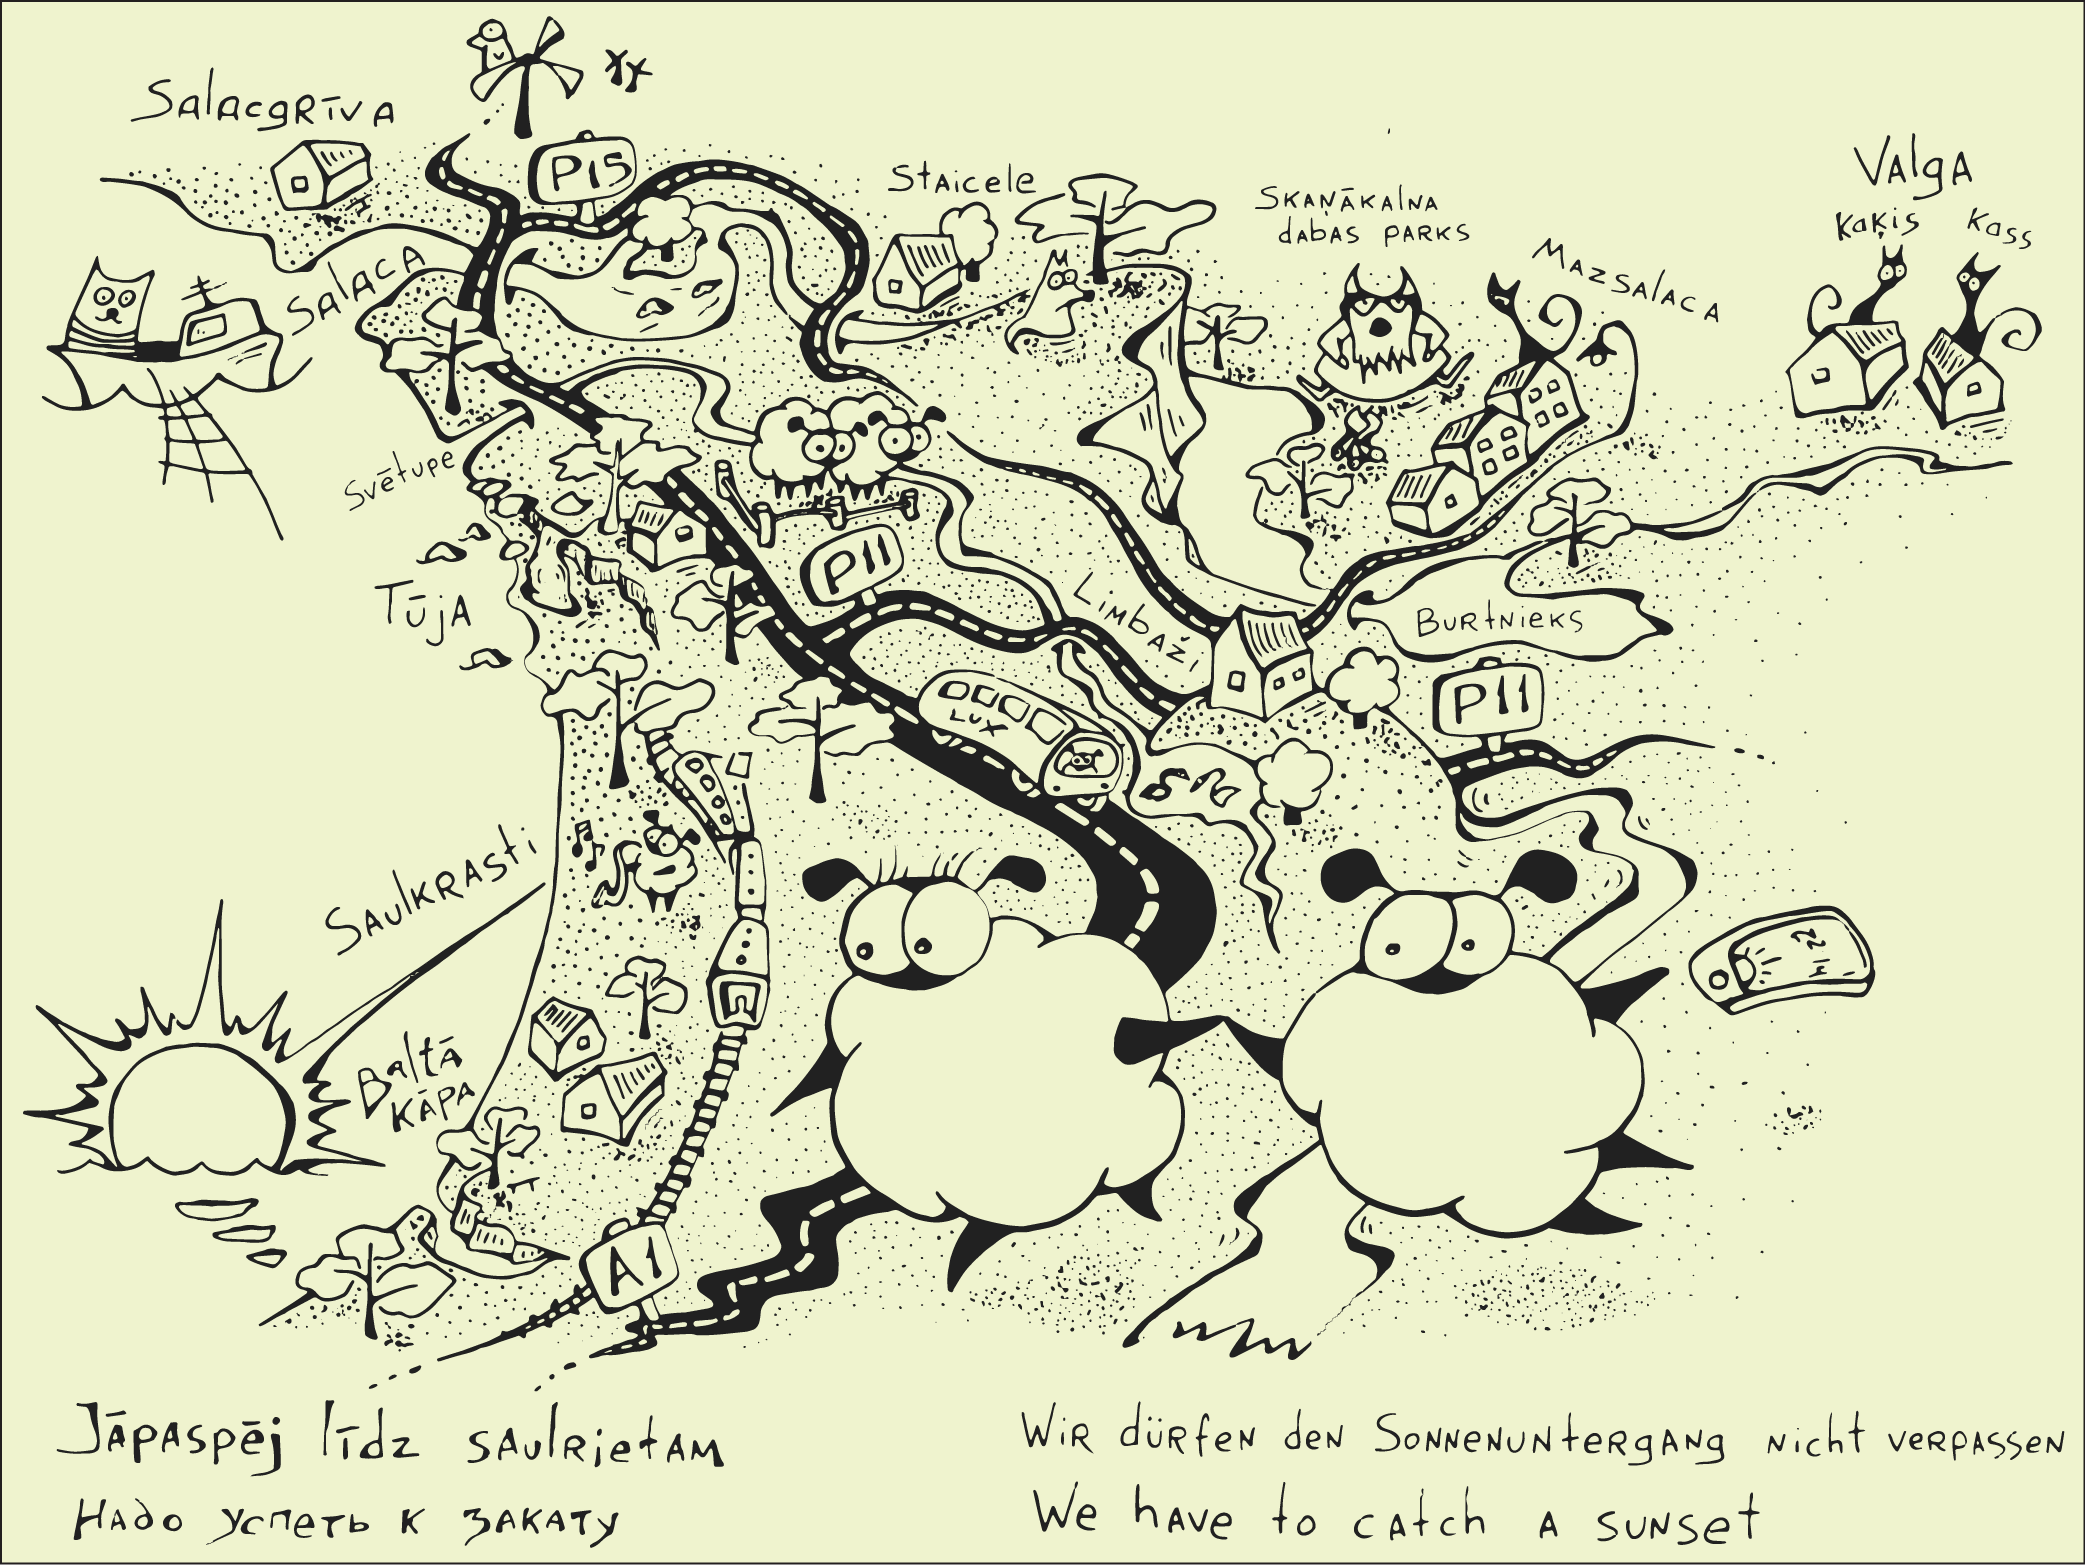 Salacgrīva
P15
Staicele
Skaņākalna
dabas parks
Mazsalaca
Valga
kaķis kass
Salaca
Svētupe
Tūja
P11
Limbaži
Burtnieks
P11
LUX
Saulkrasti
zz
Baltā
kāpa
A1
Jāpaspēj līdz saulrietam
Надо успеть к закату
Wir dürfen den Sonnenuntergang nicht verpassen
We have to catch a sunset